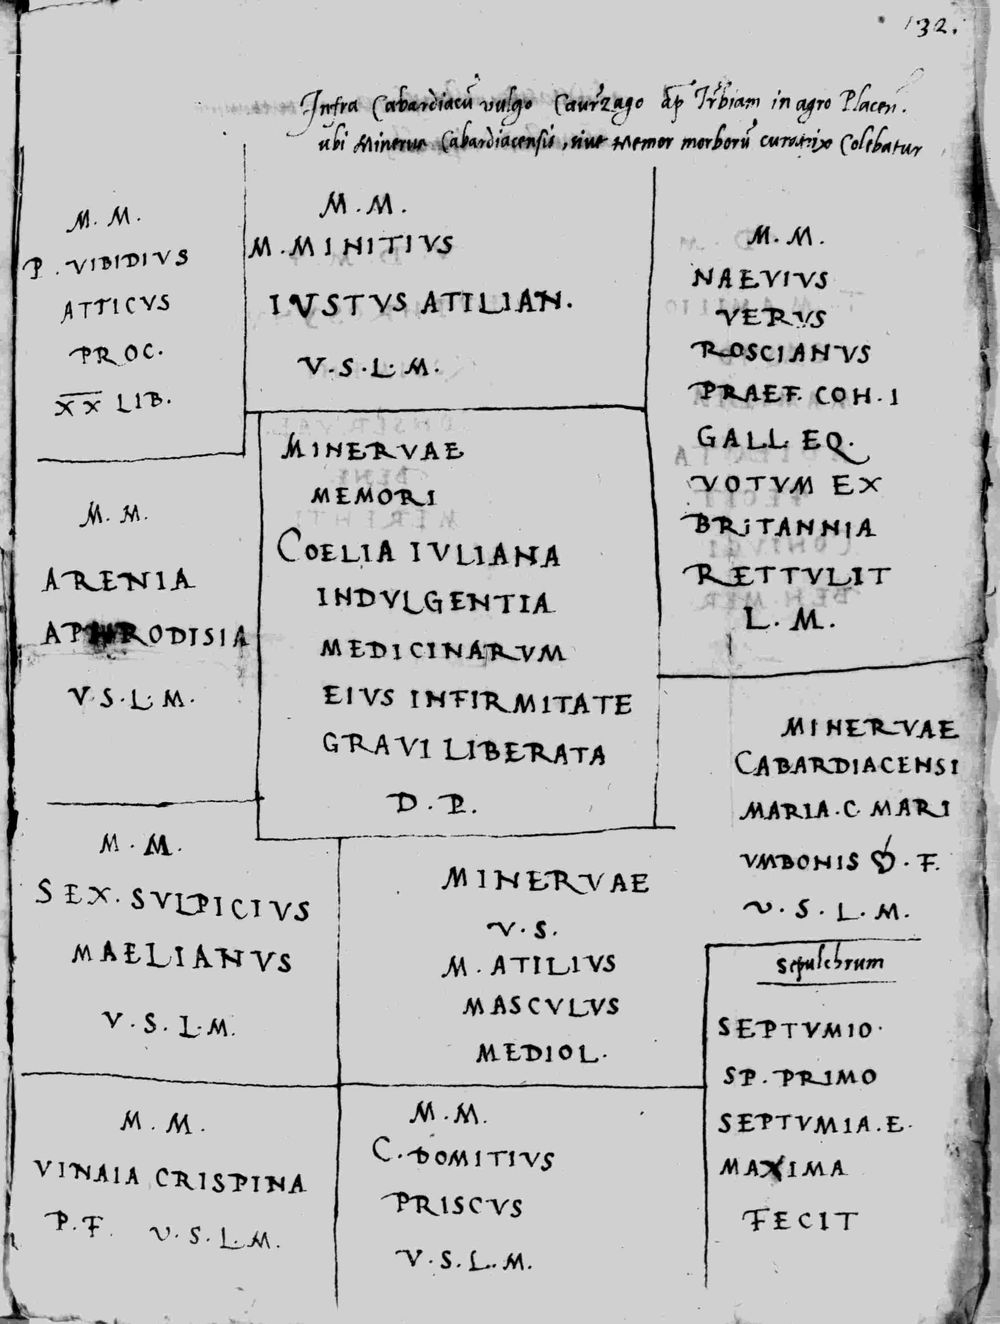 132.
Infra Cabardiacū vulgo Caurzago ap̄ Trbiam in agro Placen̄.
ubi Minerva Cabardiacensis, sive Memor morborū curatrix Colebatur
M. M.
P. VIBIDIVS
ATTICVS
PROC.
X̅X̅ LIB.
M. M.
M. MINITIVS
IVSTVS ATILIAN.
V. S. L. M.
M. M.
NAEVIVS
VERVS
ROSCIANVS
PRAEF. COH. I
GALL EQ.
VOTVM EX
BRITANNIA
RETTVLIT
L. M.
M. M.
ARENIA
APHRODISIA
V. S. L. M.
MINERVAE
MEMORI
COELIA IVLIANA
INDVLGENTIA
MEDICINARVM
EIVS INFIRMITATE
GRAVI LIBERATA
D. P.
MINERVAE
CABARDIACENSI
MARIA. C. MARI
VMBONIS ❦. F.
V. S. L. M.
M. M.
SEX. SVLPICIVS
MAELIANVS
V. S. L. M.
MINERVAE
V. S.
M. ATILIVS
MASCVLVS
MEDIOL.
sepulchrum
SEPTVMIO.
SP. PRIMO
SEPTVMIA. E.
MAXIMA
FECIT
M. M.
VINAIA CRISPINA
P. F. V. S. L. M.
M. M.
C. DOMITIVS
PRISCVS
V. S. L. M.